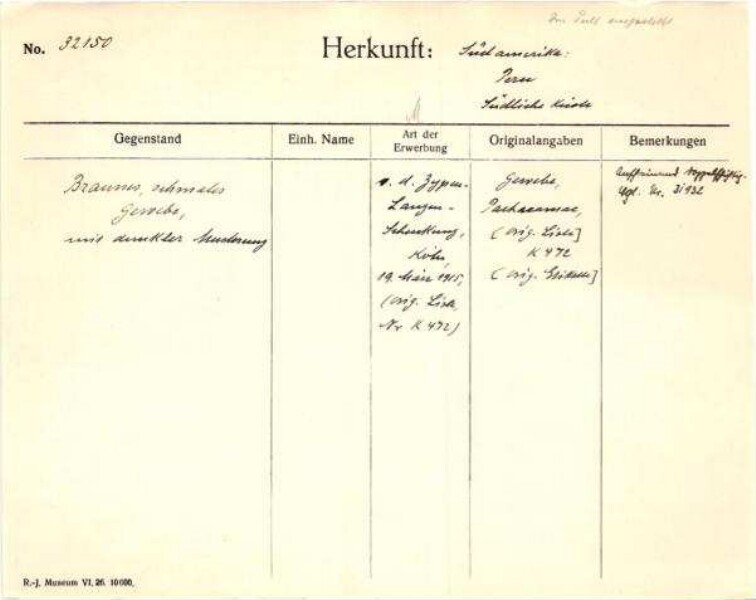 No. 32150
Herkunft: Südamerika:
Peru
Südliche Küste
Gegenstand
Einh. Name
Art der Erwerbung
Originalangaben
Bemerkungen
Braunes, schmales
Gewebe,
mit dunkler Musterung
v. d. Zypen-
Langen-
Schenkung,
Köln,
19. März 1915,
(Orig. Liste,
Nr K 472)
Gewebe,
Pachacamac,
(Orig. Liste]
K 472
(Orig. Etikette]
vgl. Nr. 31932
R.-J. Museum VI. 26. 10000.